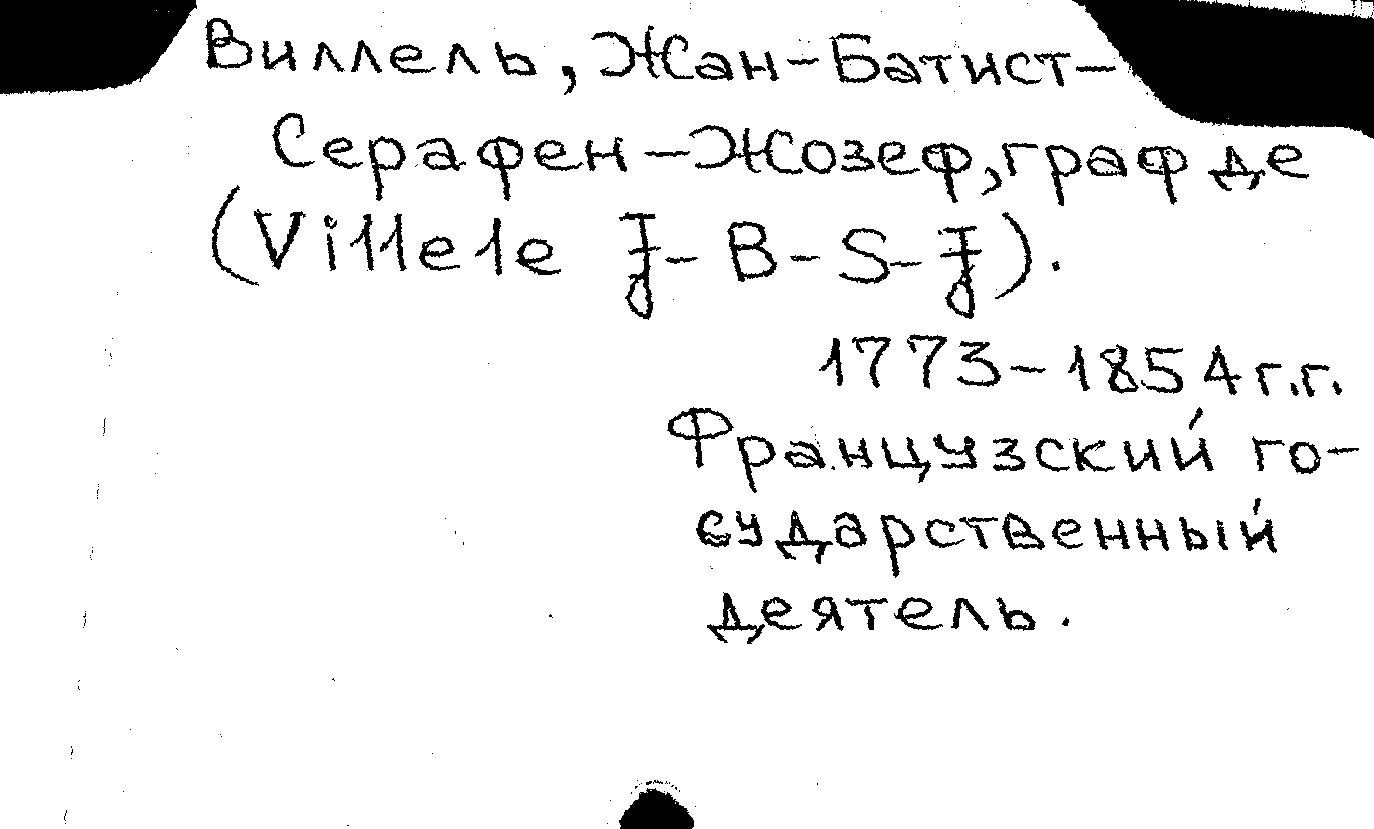 Виллель, Жан-Батист-
Серафен-Жозеф, граф де
(Villele J-B-S-J).
1773-1854 г.г.
Французский го-
сударственный
деятель.